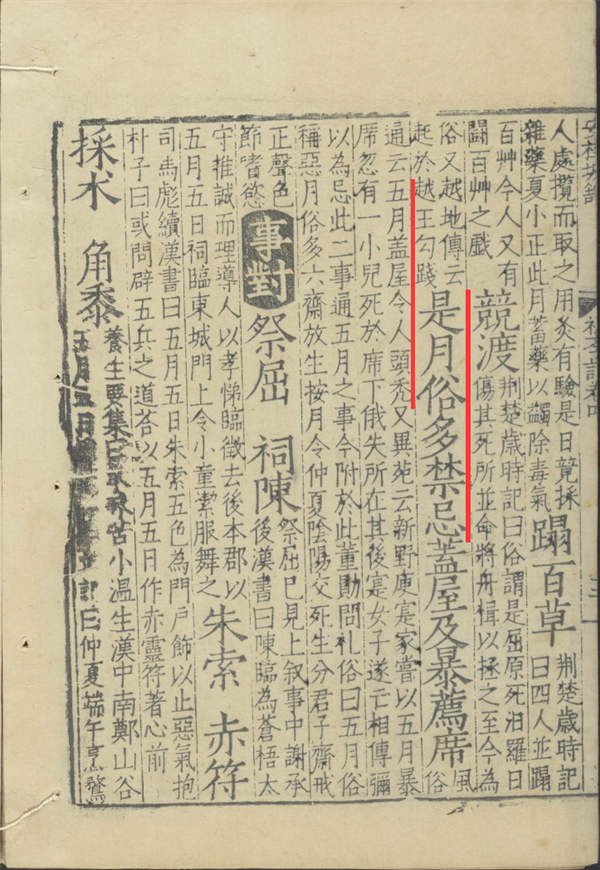 人處攬而取之用灸有驗是日競採
雜藥夏小正此月蓄藥以蠲除毒氣
蹋百草
荆楚歲時記
曰四人並蹋
百艸今人又有
鬪百艸之戲
競渡
荆楚歲時記曰俗謂是屈原死汨羅日
傷其死所並命將舟楫以拯之至今為
俗又越地傳云
起於越王勾踐
是月俗多禁忌蓋屋及暴薦席
風
俗
通云五月蓋屋令人頭禿又異苑云新野庾寔家嘗以五月暴
席忽有一小兒死於席下俄失所在其後寔女子遂亡相傳彌
以為忌此二事通五月之事今附於此董勛問礼俗曰五月俗
稱惡月俗多六齋放生按月令仲夏陰陽交死生分君子齋戒
正聲色
節嗜慾
事對
祭屈 祠陳
祭屈已見上叙事中謝承
後漢書曰陳臨為蒼梧太
守推誠而理導人以孝悌臨徵去後本郡以
五月五日祠臨東城門上令小童潔服舞之
朱索 赤符
司馬彪續漢書曰五月五日朱索五色為門戶飾以止惡氣抱
朴子曰或問辟五兵之道荅以五月五日作赤靈符著心前
採术 角黍
養生要集曰术味苦小温生漢中南鄭山谷
五月五日記曰仲夏端午烹鶩